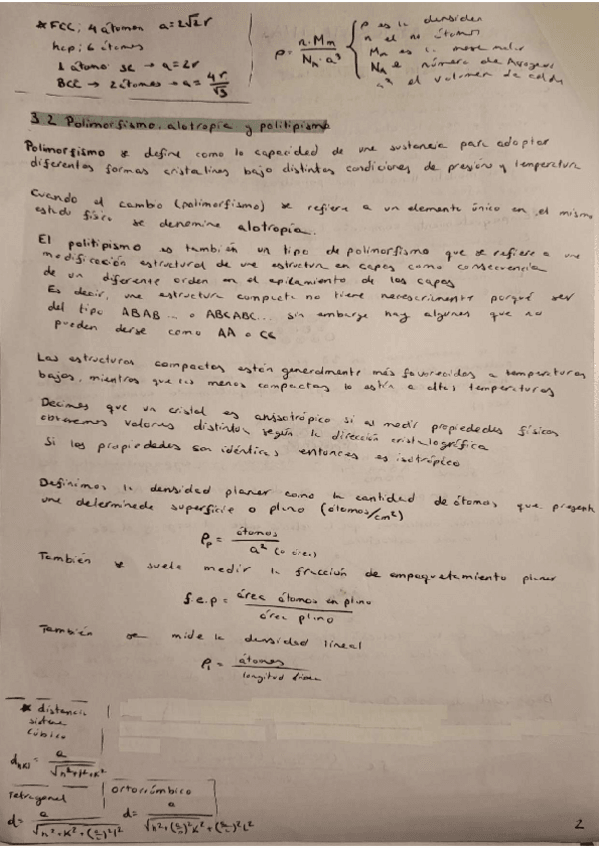 * FCC; 4 átomos a=2√2 r
hcp; 6 átomos
1 átomo sc → a=2r
BCC → 2 átomos → a = 4r/√3
ρ = n·Mm / NA·a³
ρ es la densidad
n el no átomos
Mm es la masa molar
NA el número de Avogadro
a³ el volumen de celda
3.2 Polimorfismo, alotropía y politipismo
Polimorfismo se define como la capacidad de una sustancia para adoptar
diferentes formas cristalinas bajo distintas condiciones de presión y temperatura
Cuando el cambio (polimorfismo) se refiere a un elemento único en el mismo
estado físico se denomina alotropía.
El politipismo es también un tipo de polimorfismo que se refiere a una
modificación estructural de una estructura en capas como consecuencia
de un diferente orden en el apilamiento de las capas
Es decir, una estructura compacta no tiene necesariamente porqué ser
del tipo ABAB... o ABCABC... sin embargo hay algunas que no
pueden darse como AA o CC
Las estructuras compactas están generalmente más favorecidas a temperaturas
bajas, mientras que las menos compactas lo están a altas temperaturas
Decimos que un cristal es anisotrópico si al medir propiedades físicas
obtenemos valores distintos según la dirección cristalográfica
Si las propiedades son idénticas entonces es isotrópico
Definimos la densidad planar como la cantidad de átomos que presenta
una determinada superficie o plano (átomos/cm²)
ρp = átomos / a² (o área)
También se suele medir la fracción de empaquetamiento planar
f.e.p = área átomos en plano / área plano
También se mide la densidad lineal
ρl = átomos / longitud línea
* distancia
sistema
cúbico
dhkl = a / √h²+l²+k²
Tetragonal
d = a / √h²+k²+(a/c)²l²
ortorrómbico
d = a / √h²+(a/b)²k²+(a/c)²l²
2